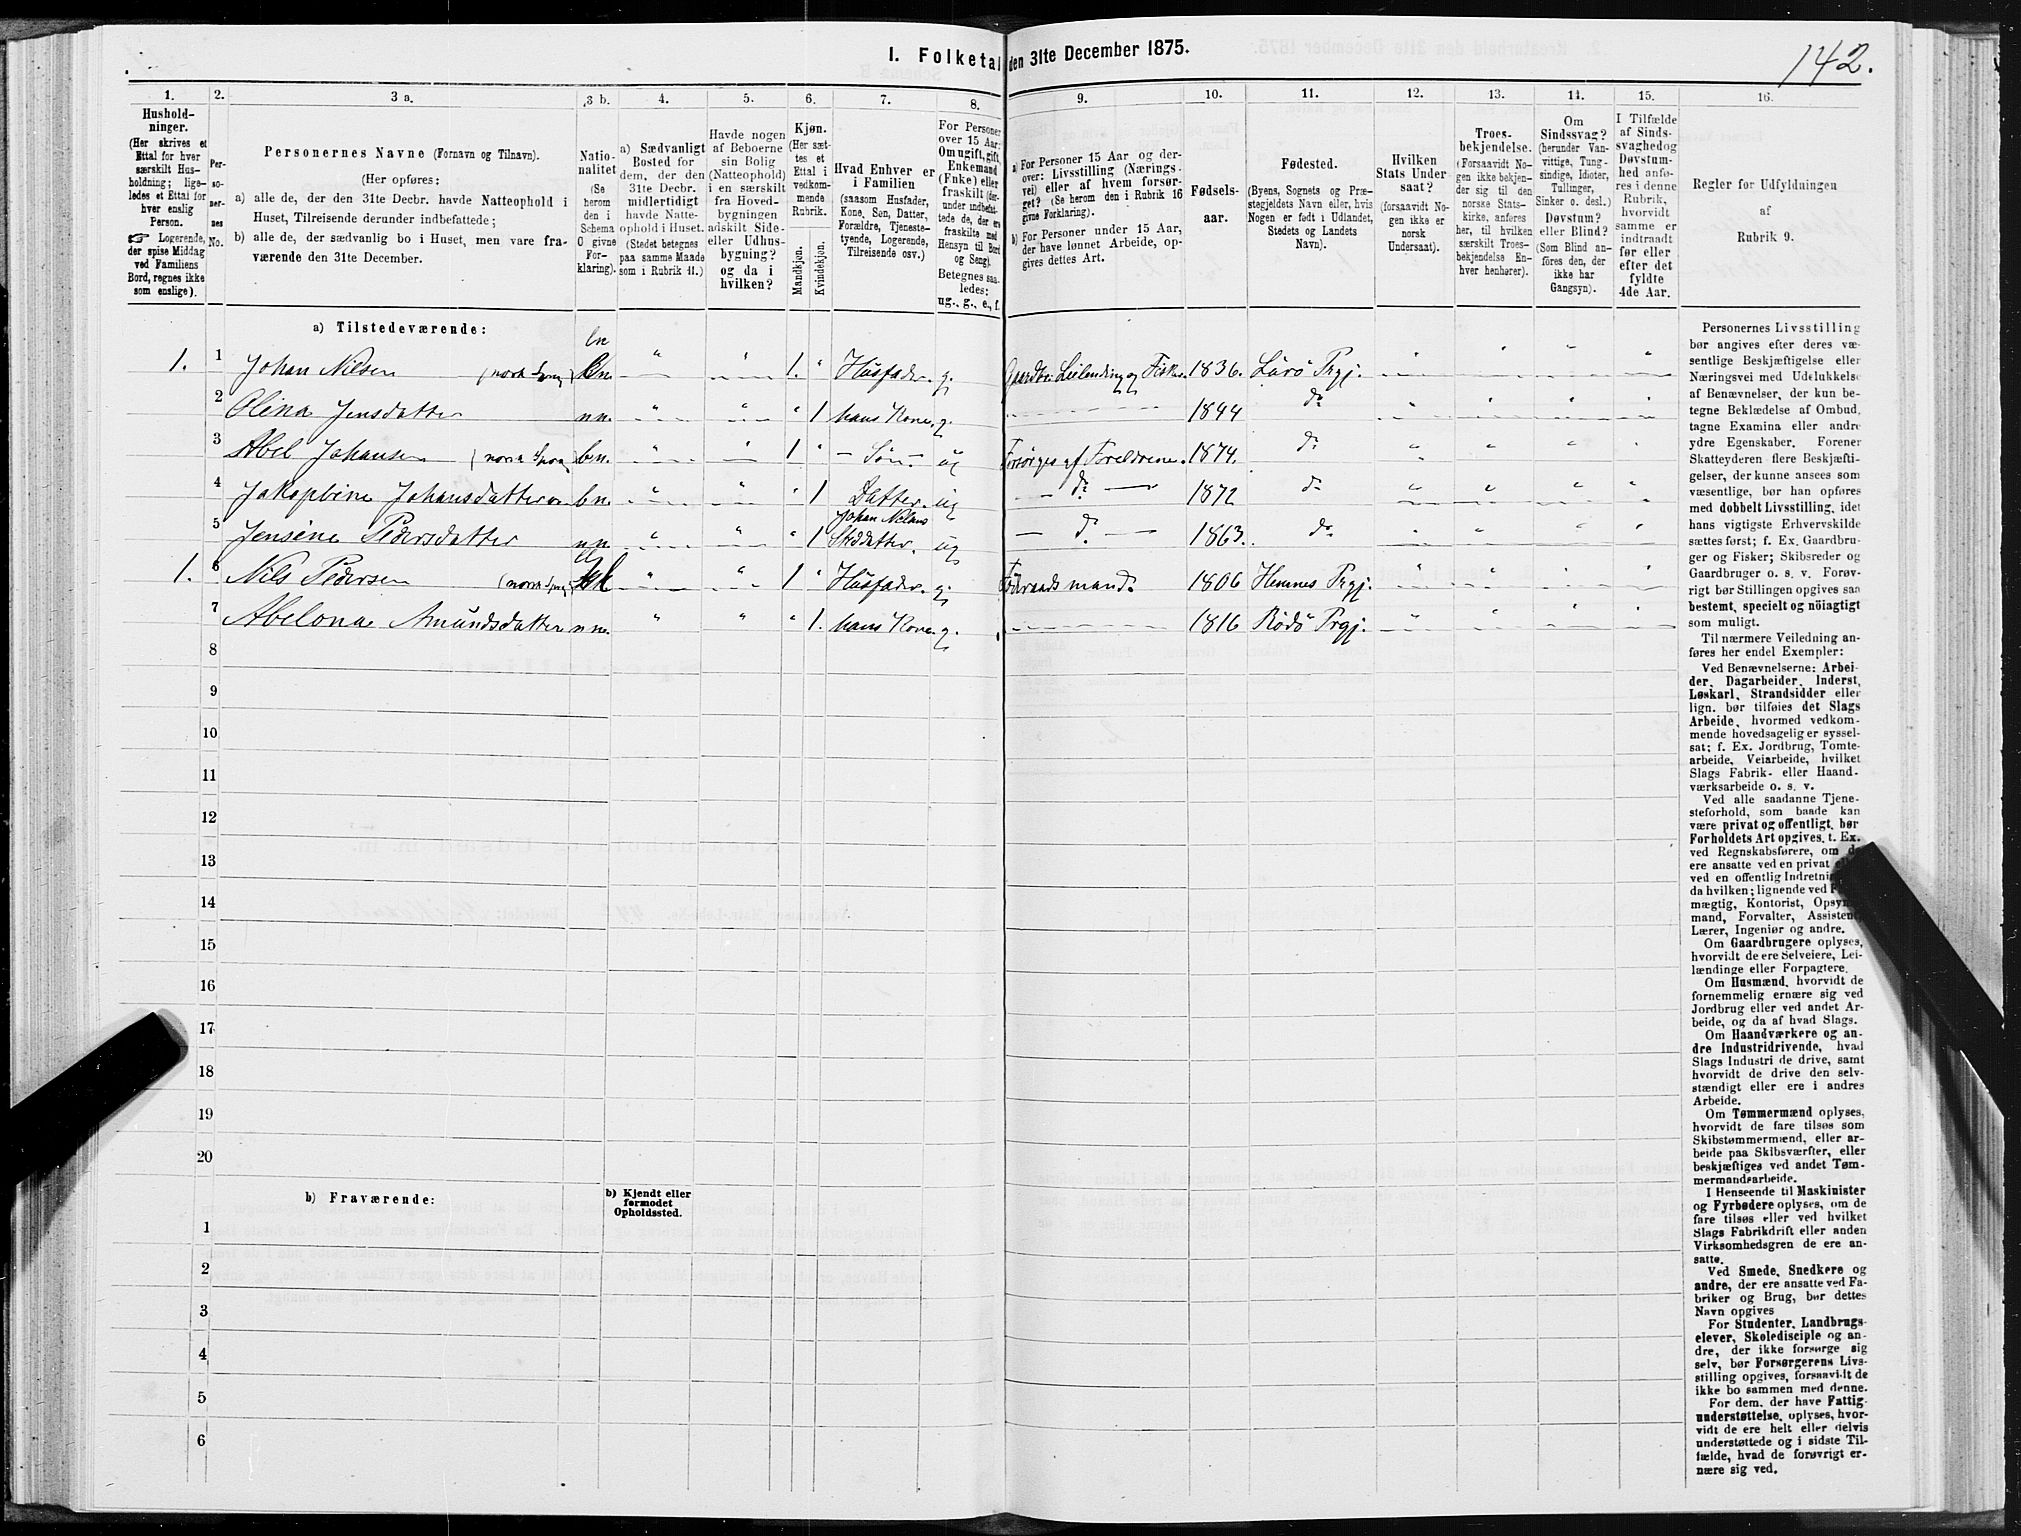 I. Folketal den 31te December 1875.
142.
1. 2. 3 a. 3 b. 4. 5. 6. 7. 8. 9. 10. 11. 12. 13. 14. 15. 16.
Hushold-
ninger.
(Her skrives et
Ettal for hver
særskilt Hus-
holdning; lige-
ledes et Ettal for
hver enslig
Person.
☞ Logerende,
der spise Middag
ved Familiens
Bord, regnes ikke
som enslige).
Per-
so-
ner-
nes
No.
Personernes Navne (Fornavn og Tilnavn).
(Her opføres:
a) alle de, der den 31te Decbr. havde Natteophold i
Huset, Tilreisende derunder indbefattede;
b) alle de, der sædvanlig bo i Huset, men vare fra-
værende den 31te December.
Natio-
nalitet
(Se
herom
den i
Schema
O givne
For-
klaring).
a) Sædvanligt
Bosted for
dem, der den
31te Decbr.
midlertidigt
havde Natte-
ophold i Huset.
(Stedet betegnes
paa samme Maade
som i Rubrik 11.)
Havde nogen
af Beboerne
sin Bolig
(Natteophold)
i en særskilt
fra Hoved-
bygningen
adskilt Side-
eller Udhus-
bygning?
og da i
hvilken?
Kjøn.
(Her sæt-
tes et
Ettal i
vedkom-
mende
Rubrik.
Mandkjøn.
Kvindekjøn.
Hvad Enhver er
i Familien
(saasom Husfader,
Kone, Søn, Datter,
Forældre, Tjeneste-
tyende, Logerende,
Tilreisende osv.)
For Personer
over 15 Aar:
Om ugift, gift,
Enkemand
(Enke) eller
fraskilt (der-
under indbefat-
tede de, der ere
fraskilte med
Hensyn til Bord
og Seng).
Betegnes saa-
ledes:
ug., g., e., f.
a) For Personer 15 Aar og der-
over: Livsstilling (Nærings-
vei) eller af hvem forsør-
get? (Se herom den i Rubrik 16
givne Forklaring).
b) For Personer under 15 Aar,
der have lønnet Arbeide, op-
gives dettes Art.
Fødsels-
aar.
Fødested.
(Byens, Sognets og Præ-
stegjeldets Navn eller, hvis
Nogen er født i Udlandet,
Stedets og Landets
Navn).
Hvilken
Stats Under
saat?
(forsaavidt No-
gen ikke er
norsk
Undersaat).
Troes-
bekjendelse.
(Forsaavidt No-
gen ikke bekjen-
der sig til den
norske Stats-
kirke, anføres
her, til hvilken
særskilt Troes-
bekjendelse En-
hver henhører).
Om
Sindssvag?
(herunder Van-
vittige, Tung-
sindige, Idioter,
Tullinger,
Sinker o. desl.)
Døvstum?
eller Blind?
(Som Blind an-
føres den, der
ikke har
Gangsyn).
I Tilfælde
af Sinds-
svaghed og
Døvstum-
hed anfø-
res i denne
Rubrik,
hvorvidt
samme er
indtraadt
før eller
efter det
fyldte
4de Aar.
Regler for Udfyldningen
af
Rubrik 9.
a) Tilstedeværende:
1. 1 Johan Nilsen (norsk Sprog) bn " " 1. " Husfader. g. Gaardbr. Leilending og Fisker. 1836. Lurö Prgj. " " " "
2 Olina Jensdatter nn. " " " 1 hans Kone. g. 1844 do " " " "
3 Abel Johansen (norsk Sprog) bn. " " 1 " Sön ug Forsörges af Foreldrene. 1874. do " " " "
4 Jakopbine Johansdatter bn. " " " 1 Datter. ug do 1872 do " " " "
5 Jensine Pedersdatter nn. " " " 1 Johan Nilsens Steddatter. ug do 1863. do " " " "
1. 6 Nils Pedersen (norsk Sprog) " " 1 " Husfader. g. Föderaadsmand. 1806 Hemnes Prgj. " " " "
7 Abelona Amundsdatter nn. " " " 1. hans Kone. g. 1816 Rödö Prgj. " " " "
8
9
10
11
12
13
14
15
16
17
18
19
20
b) Fraværende:
b) Kjendt eller
formodet
Opholdssted.
1
2
3
4
5
6
Personernes Livsstilling
bør angives efter deres væ-
sentlige Beskjæftigelse eller
Næringsvei med Udelukkelse
af Benævnelser, der kun be-
tegne Beklædelse af Ombud,
tagne Examina eller andre
ydre Egenskaber. Forener
Skatteyderen flere Beskjæfti-
gelser, der kunne ansees som
væsentlige, bør han opføres
med dobbelt Livsstilling, idet
hans vigtigste Erhvervskilde
sættes først; f. Ex. Gaardbru-
ger og Fisker; Skibsreder og
Gaardbruger o. s. v. Forøv-
rigt bør Stillingen opgives saa
bestemt, specielt og nöiagtigt
som muligt.
Til nærmere Veiledning an-
føres her endel Exempler:
Ved Benævnelserne: Arbei-
der, Dagarbeider, Inderst,
Løskarl, Strandsidder eller
lign. bør tilføies det Slags
Arbeide, hvormed vedkom-
mende hovedsagelig er syssel-
sat; f. Ex. Jordbrug, Tomte-
arbeide, Veiarbeide, hvilket
Slags Fabrik- eller Haand-
værksarbeide o. s. v.
Ved alle saadanne Tjene-
steforhold, som baade kan
være privat og offentligt, bør
Forholdets Art opgives, t. Ex.
ved Regnskabsførere, om de
ere ansatte ved en privat
ved en offentlig Indretni
da hvilken; lignende ved
mægtig, Kontorist, Opsyns-
mand, Forvalter, Assistent,
Lærer, Ingeniør og andre.
Om Gaardbrugere oplyses,
hvorvidt de ere Selveiere, Lei-
lændinge eller Forpagtere.
Om Husmænd, hvorvidt de
fornemmelig ernære sig ved
Jordbrug eller ved andet Ar-
beide, og da af hvad Slags.
Om Haandværkere og an-
dre Industridrivende, hvad
Slags Industri de drive, samt
hvorvidt de drive den selv-
stændigt eller ere i andres
Arbeide.
Om Tømmermænd oplyses,
hvorvidt de fare tilsøs som
Skibstømmermænd, eller ar-
beide paa Skibsværfter, eller
beskjæftiges ved andet Tøm-
mermandsarbeide.
I Henseende til Maskinister
og Fyrbødere oplyses, om de
fare tilsøs eller ved hvilket
Slags Fabrikdrift eller anden
Virksomhedsgren de ere an-
satte.
Ved Smede, Snedkere og
andre, der ere ansatte ved Fa-
briker og Brug, bør dettes
Navn opgives
For Studenter, Landbrugs-
elever, Skoledisciple og an-
dre, der ikke forsørge sig
selv, bør Forsørgerens Livs-
stilling opgives, forsaavidt de
ikke bo sammen med denne.
For dem, der have Fattig-
understøttelse, oplyses, hvor-
vidt de ere helt eller delvis
understøttede og i sidste Til-
fælde, hvad de forøvrigt er-
nære sig ved.